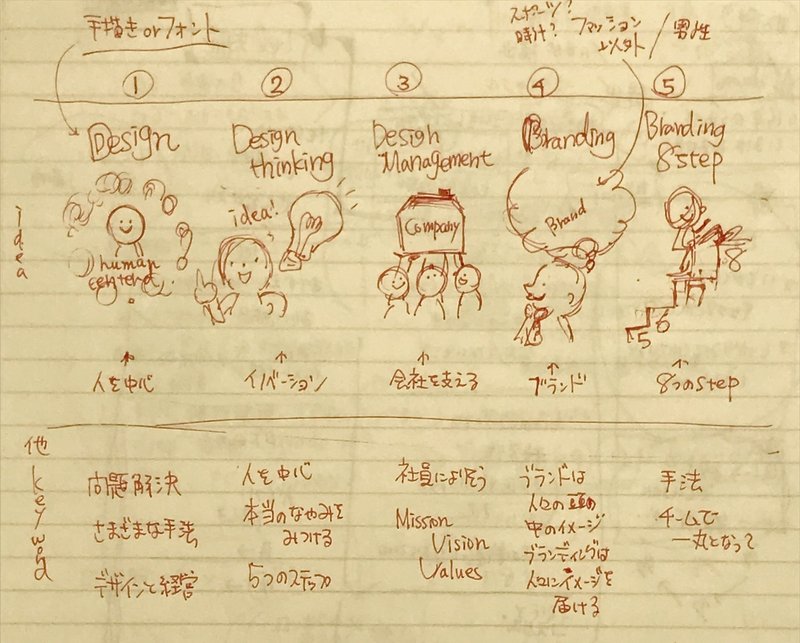 手描き or フォント
スポーツ?
時計?
ファッション
以外 / 男性
① ② ③ ④ ⑤
Design
Design
thinking
Design
Management
Branding
Branding
8step
idea
human
centerd
idea!
Company
Brand
8
6
5
人を中心
イノベーション
会社を支える
ブランド
8つのstep
他
keyword
問題解決
さまざまな手法
デザインと経営
人を中心
本当のなやみを
みつける
5つのステップ
社員によりそう
Mission
Vision
Values
ブランドは
人の頭の
中のイメージ
ブランディングは
人にイメージを
届ける
手法
チームで
一丸となって